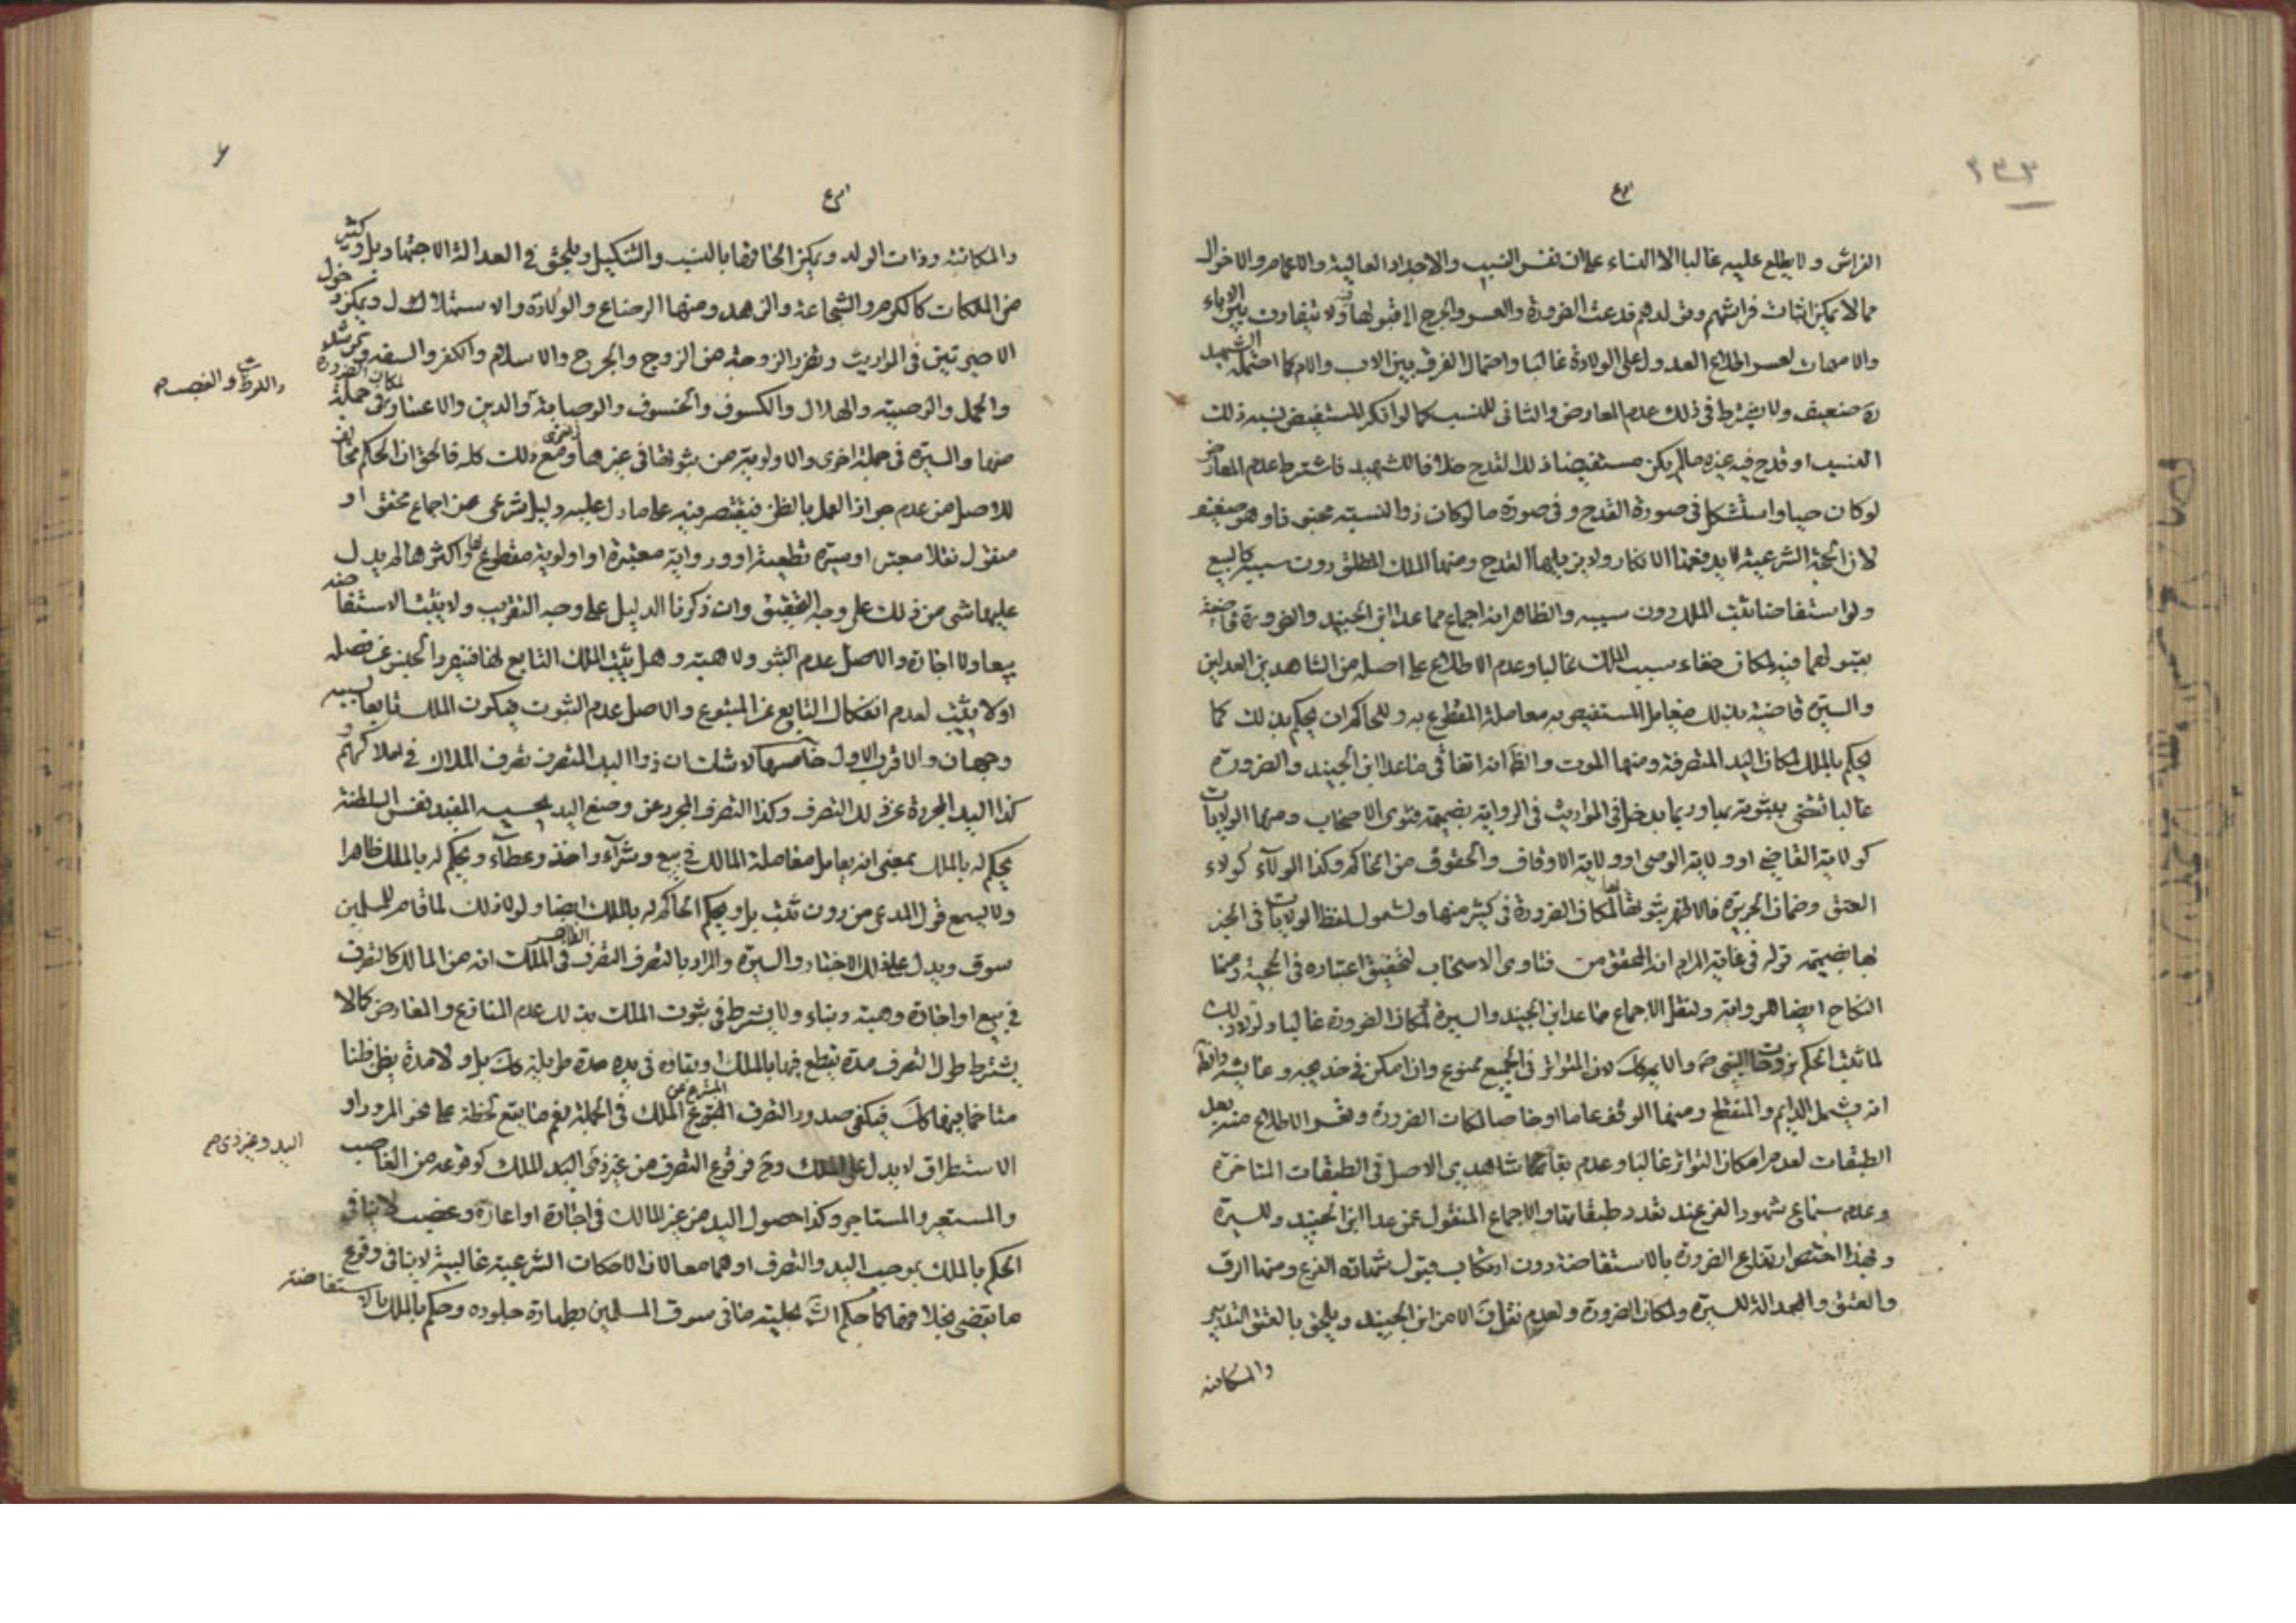 الفراش ولا يطلع عليه غالبا الا النساء على ان نفس النسب والاجداد العالية والاعمام والاخوال
مما لا يمكن اثبات فراشهم وتولدهم فدعت الضرورة والعسر والحرج الى قبولها ولا تفاوت بين الاباء
والامهات لعسر اطلاع العدول على الولادة غالبا واحتمال الفرق بين الاب والام كما احتمله الشهيد
ره ضعيف ولا يشترط في ذلك عدم المعارض والثاني للنسب كما لو انكر المستفيض نسبه ذلك
النسب او قدح فيه غيره ما لم يكن مستفيضا ذلك القدح خلافا للشهيد فاشترط عدم المعارض
لو كان حيا واستشكل في صورة القدح وفي صورة ما لو كان ذو النسبة مجنونا وهو ضعيف
لان الحجة الشرعية لا يدفعها الانكار ولا يزيلها القدح ومنها الملك المطلق دون سببه كالبيع
ولو استفاضا ثبت الملك دون سببه والظاهر انه اجماع مما عدا ابن الجنيد والضرورة قاضية
بقبولها فيه لمكان خفاء سبب الملك غالبا وعدم الاطلاع على اصله من الشاهدين العدلين
والسيرة قاضية بذلك فيعامل المستفيض به معاملة المقطوع به وللحاكم ان يحكم بذلك كما
يحكم بالملك لمكان اليد المتصرفة ومنها الموت والظ انه اتفاقي ما عدا ابن الجنيد والضرورة
غالبا تقضي بثبوته بها وربما يدخل في المواريث في الرواية بضميمة فتوى الاصحاب ومنها الولايات
كولاية القاضي او ولاية الوصي او ولاية الاوقاف والحقوق من الحاكم وكذا الولاء كولاء
العتق وضمان الجريرة فالاظهر ثبوتها بها لمكان الضرورة في كثير منها ولشمول لفظ الولايات في الخبر
لها بضميمة قوله في غاية المرام انه المحقق من فتاوى الاصحاب لتحقيق اعتباره في الحجية ومنها
النكاح ايضا لرواية ولنقل الاجماع ما عدا ابن الجنيد والسيرة لمكان الضرورة غالبا ولولا ذلك
لما ثبت الحكم بزوجات النبي ص والائمة لان التواتر في الجميع ممنوع وان امكن في خديجه وعايشه والظ
انه يشمل الدايم والمنقطع ومنها الوقف عاما او خاصا لمكان الضرورة وتعسر الاطلاع منه بعد
الطبقات لعدم امكان التواتر غالبا وعدم بقاء شاهدي الاصل في الطبقات المتاخرة
وعدم سماع شهود الفرع عند تعدد طبقاتها والاجماع المنقول عمن عدا ابن الجنيد وللسيرة
وبهذا اختص ارتفاع الضرورة بالاستفاضة دون ارتكاب قبول شهادة الفرع ومنها الرق
والعتق والعدالة للسيرة ولمكان الضرورة ولعدم نقل الامر ابن الجنيد ويلحق بالعتق التدبير
والمكاتبة
والمكاتبة وذات الولد ويمكن الحاقها بالنسب والتنكيل ويلحق في العدالة الاجتهاد بل وكثير
من الملكات كالكرم والشجاعة والزهد ومنها الرضاع والولادة والاستهلال ويمكن دخول
الاخيرتين في المواريث وتضرر الزوجة من الزوج والجرح والاسلام والكفر والسفه والرشد
والحمل والوصية والهلال والكسوف والخسوف والوصاية والدين والاعسار في جملة
واللوث والغصب
منها والسيرة في جملة اخرى والاولوية من ثبوتها في غيرها ومع ذلك كله فالحق ان الحكم مخالف
للاصل من عدم جواز العمل بالظن فيقتصر فيه على ما دل عليه دليل شرعي من اجماع محقق او
منقول نقلا معتبرا او سيرة قطعية او ورواية معتبرة او اولوية مقطوع بها واكثرها لم يدل
عليها شي من ذلك على وجه التحقيق وان ذكرنا الدليل على وجه التقريب ولا يثبت الاستفاضه
بيعا ولا اجارة والاصل عدم الثبوت ولا هبة وهل يثبت الملك التابع لها
او لا يثبت لعدم انفكاك التابع عن المتبوع والاصل عدم الثبوت فيكون الملك تابعا لسببه
وجهان والاقرب الاول خامسها لا شك ان ذا اليد المتصرف تصرف الملاك في املاكهم
كذا اليد المجردة عن ذلك التصرف وكذا التصرف المجرد عن وضع اليد بحسبه المفيد نفس السلطنة
يحكم له بالملك بمعنى انه يعامل معاملة المالك في بيع وشراء واخذ وعطاء ويحكم له بالملك ظاهرا
ولا يسمع قول المدعي من دون ثبت بل ويحكم الحاكم له بالملك ايضا ولولا ذلك لما قام للمسلمين
سوق ويدل على ذلك الاخبار والسيرة والمراد بالتصرف التصرف في الملك الظاهر انه من المالك كالتصرف
في بيع او اجارة وهبة وبناء ولا يشترط في ثبوت الملك بذلك عدم المنازع والمعارض كما لا
يشترط طول التصرف مدة يقطع فيها بالملك او بقاؤه في يده مدة طويلة كك بل ولا مدة يظن ظنا
متاخما فيها كك فيكفي صدور التصرف المتفرع عن الملك في الجملة نعم ما يقع لحظة على نحو المرور او
الاستطراق لا يدل على الملك وح فوقوع التصرف من غير ذي اليد للملك كوقوعه من الغاصب
اليد وغير ذي
والمستعير والمستاجر وكذا حصول اليد من غير المالك في اجارة او اعارة وغصب لا ينافي
الحكم بالملك بموجب اليد والتصرف او هما معا لان الامكات الشرعية غالبية لا ينافي وقوع
ما يقضي بخلافها كما حكم الش بحلية ما في سوق المسلمين وطهارة جلوده وحكم بالملك بالاستفاضة